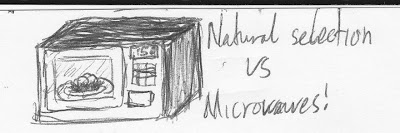 Natural selection
vs
Microwaves!